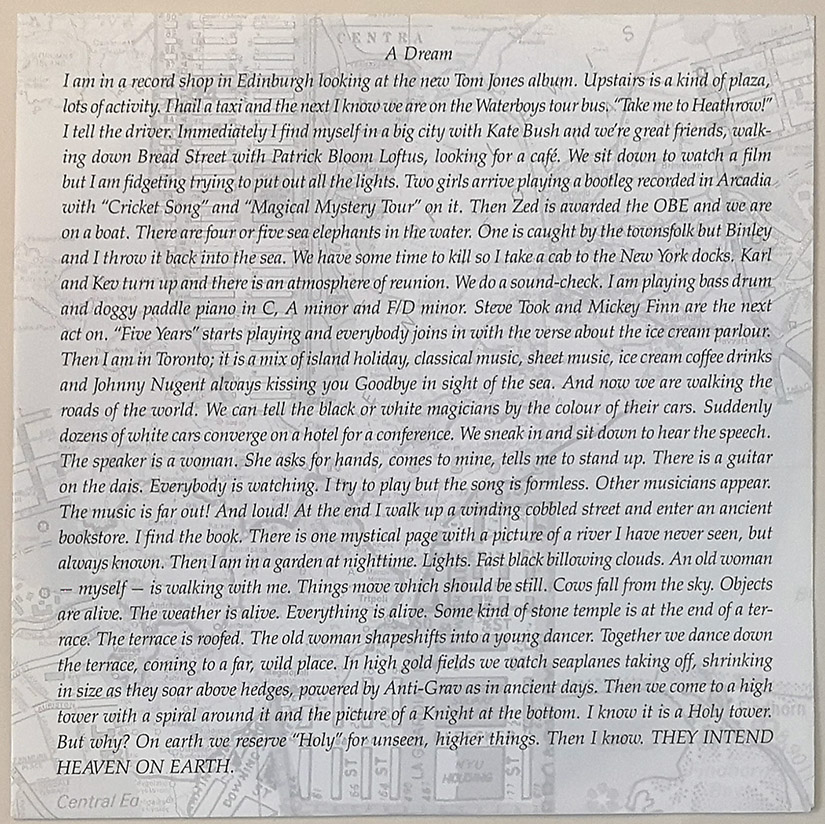 CENTRA
S
A Dream
I am in a record shop in Edinburgh looking at the new Tom Jones album. Upstairs is a kind of plaza,
lots of activity. I hail a taxi and the next I know we are on the Waterboys tour bus. “Take me to Heathrow!”
I tell the driver. Immediately I find myself in a big city with Kate Bush and we're great friends, walk-
ing down Bread Street with Patrick Bloom Loftus, looking for a café. We sit down to watch a film
but I am fidgeting trying to put out all the lights. Two girls arrive playing a bootleg recorded in Arcadia
with “Cricket Song” and “Magical Mystery Tour” on it. Then Zed is awarded the OBE and we are
on a boat. There are four or five sea elephants in the water. One is caught by the townsfolk but Binley
and I throw it back into the sea. We have some time to kill so I take a cab to the New York docks. Karl
and Kev turn up and there is an atmosphere of reunion. We do a sound-check. I am playing bass drum
and doggy paddle piano in C, A minor and F/D minor. Steve Took and Mickey Finn are the next
act on. “Five Years” starts playing and everybody joins in with the verse about the ice cream parlour.
Then I am in Toronto; it is a mix of island holiday, classical music, sheet music, ice cream coffee drinks
and Johnny Nugent always kissing you Goodbye in sight of the sea. And now we are walking the
roads of the world. We can tell the black or white magicians by the colour of their cars. Suddenly
dozens of white cars converge on a hotel for a conference. We sneak in and sit down to hear the speech.
The speaker is a woman. She asks for hands, comes to mine, tells me to stand up. There is a guitar
on the dais. Everybody is watching. I try to play but the song is formless. Other musicians appear.
The music is far out! And loud! At the end I walk up a winding cobbled street and enter an ancient
bookstore. I find the book. There is one mystical page with a picture of a river I have never seen, but
always known. Then I am in a garden at nighttime. Lights. Fast black billowing clouds. An old woman
— myself — is walking with me. Things move which should be still. Cows fall from the sky. Objects
are alive. The weather is alive. Everything is alive. Some kind of stone temple is at the end of a ter-
race. The terrace is roofed. The old woman shapeshifts into a young dancer. Together we dance down
the terrace, coming to a far, wild place. In high gold fields we watch seaplanes taking off, shrinking
in size as they soar above hedges, powered by Anti-Grav as in ancient days. Then we come to a high
tower with a spiral around it and the picture of a Knight at the bottom. I know it is a Holy tower.
But why? On earth we reserve “Holy” for unseen, higher things. Then I know. THEY INTEND
HEAVEN ON EARTH.
NYU
HOUSING
Central